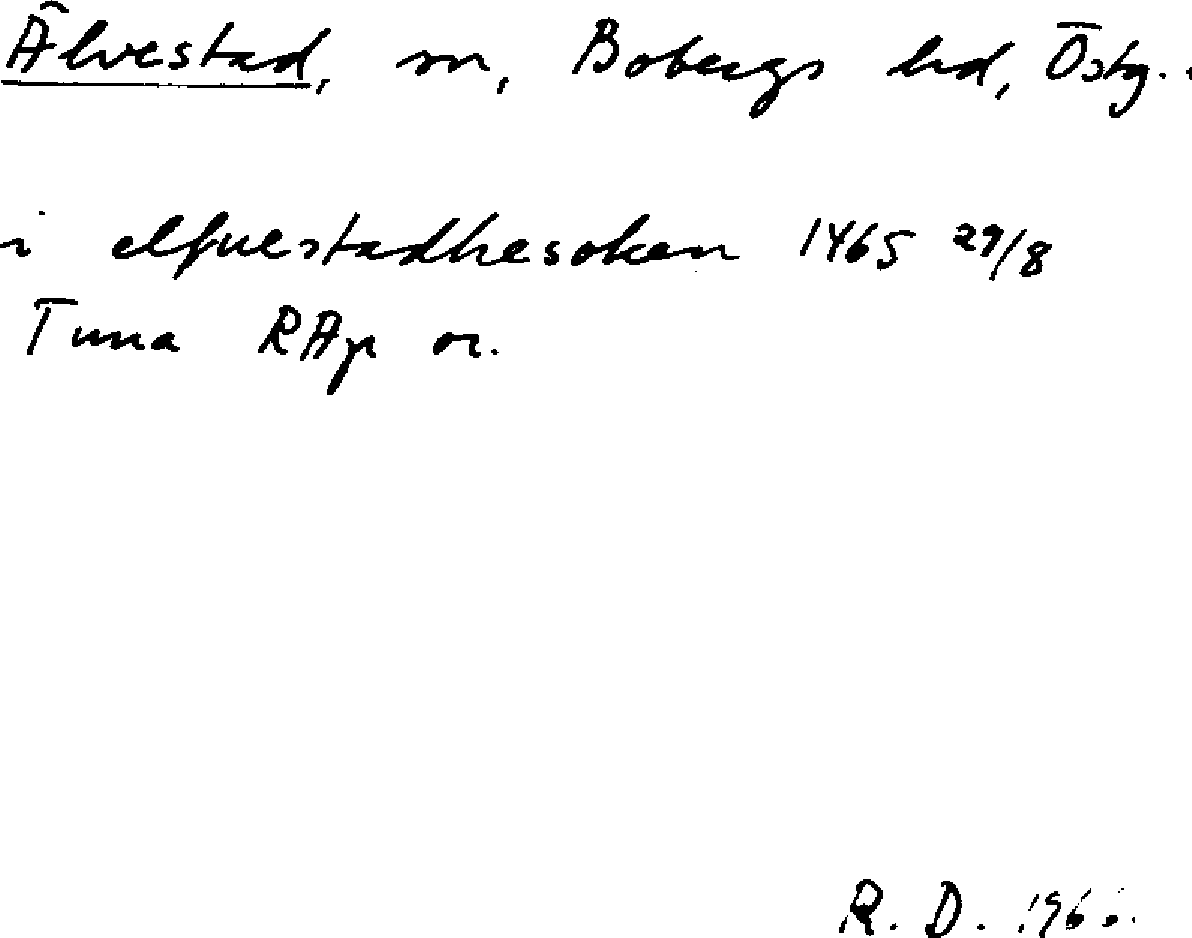 Älvestad, sn, Bobergs hd, Östg..
i elfuestadhesoken 1465 29/8
Tuna RAp or.
R. D.